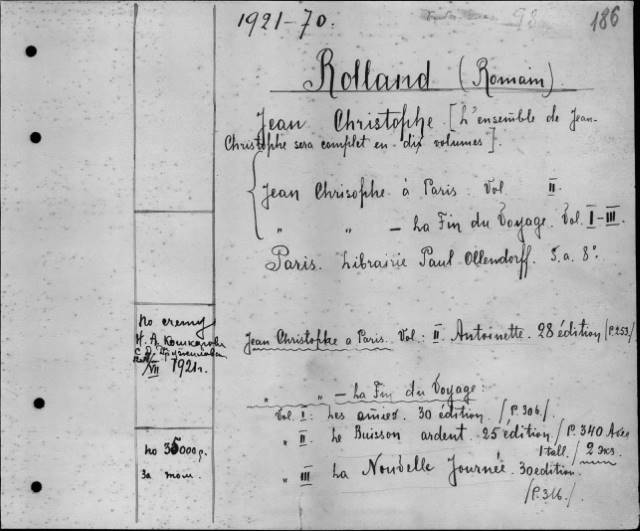 1921-70.
98
186
Rolland (Romain)
Jean Christophe [L'ensemble de Jean-
Christophe sera complet en dix volumes].
Jean Chrisophe à Paris. Vol II.
" " - La Fin du Voyage. Vol. I-III.
Paris. Librairie Paul Ollendorff. S.a. 8°.
по счету
Н. А. Кошкарова
VII 1921г.
Jean Christophe a Paris. Vol: II Antoinette. 28 édition /P.253/
" " - La Fin du Voyage:
Vol. I: Les amies. 30 édition. /P.306/.
" II. Le Buisson ardent. 25 édition. /P.340
1 tall. / 2 экз.
" III La Nouvelle Journée. 30 edition.
/P.316/.
по 35000 р.
за том.